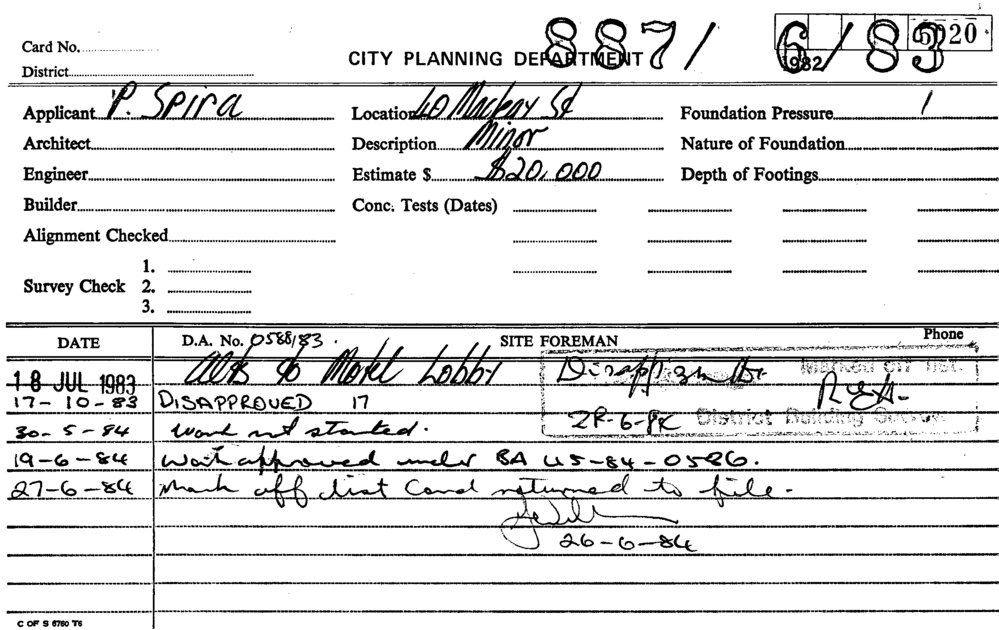 Card No. 887/ 6/83 5020
District CITY PLANNING DEPARTMENT 1982
Applicant P. Spira Location 40 Macleay St Foundation Pressure
Architect Description Minor Nature of Foundation
Engineer Estimate $ $20,000 Depth of Footings
Builder Conc. Tests (Dates)
Alignment Checked
1.
Survey Check 2.
3.
DATE D.A. No. 0588/83. SITE FOREMAN Phone
18 JUL 1983 Alts to Motel Lobby Marked off list.
17-10-83 DISAPPROVED 17
28-6-84 District Building Surveyor
30-5-84 Work not started.
19-6-84 Work approved under BA 45-84-0586.
27-6-84 Mark off list Card returned to file.
26-6-84
C OF S 6760 T6